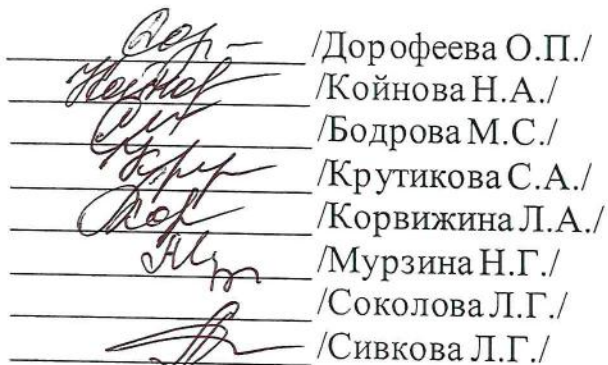 /Дорофеева О.П./
/Койнова Н.А./
/Бодрова М.С./
/Крутикова С.А./
/Корвижина Л.А./
/Мурзина Н.Г./
/Соколова Л.Г./
/Сивкова Л.Г./